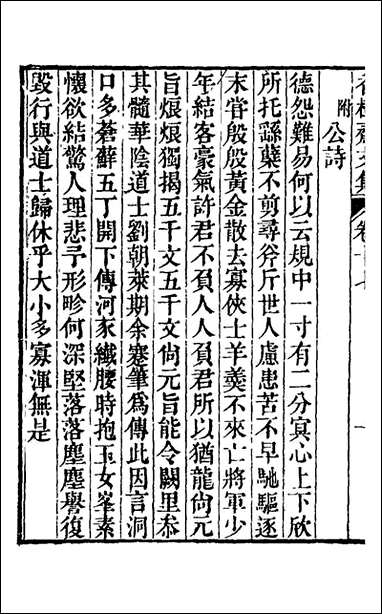 齋文集 卷十七
附 公詩
德怨難易何以云規中一寸有二分冥心上下欣
所托繇蘖不剪尋斧斤世人慮患苦不早馳驅逐
末甞殷殷黃金散去寡俠士羊羹不來亡將軍少
年結客豪氣許君不負人人負君所以猶龍尚元
旨烺烺獨揭五千文五千文尚元旨能令闕里叅
其髓華陰道士劉朝萊期余蹇筆爲傳此因言洞
口多蒼蘚五丁開下傳河豕纖腰時抱玉女峯素
懷欲結驚人理悲予形畛何深堅落落塵塵譽復
毀行與道士歸休乎大小多寡渾無是